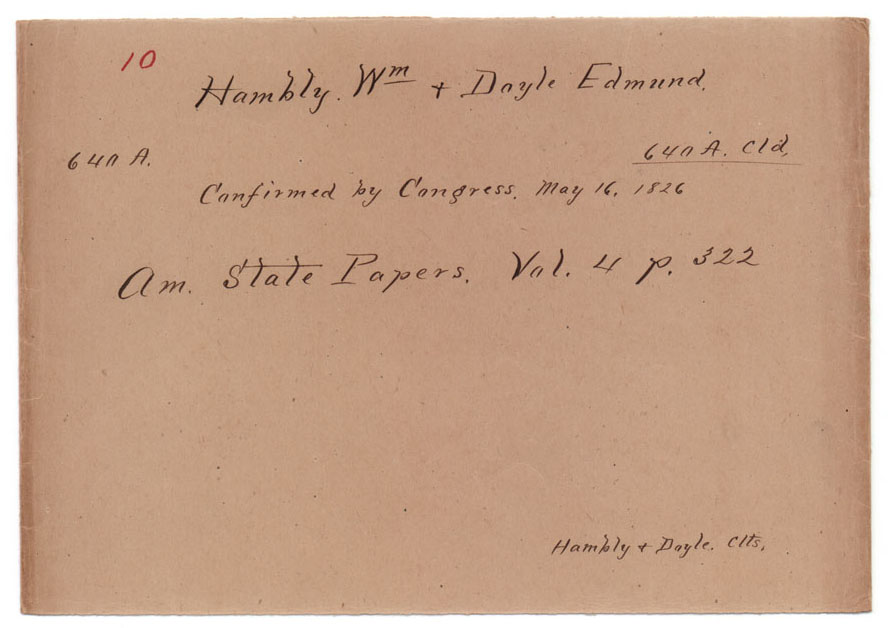 10
Hambly. Wm + Doyle Edmund.
640 A.
640 A. Cld.
Confirmed by Congress. May 16, 1826
Am. State Papers. Vol. 4 p. 322
Hambly + Doyle. Clts.